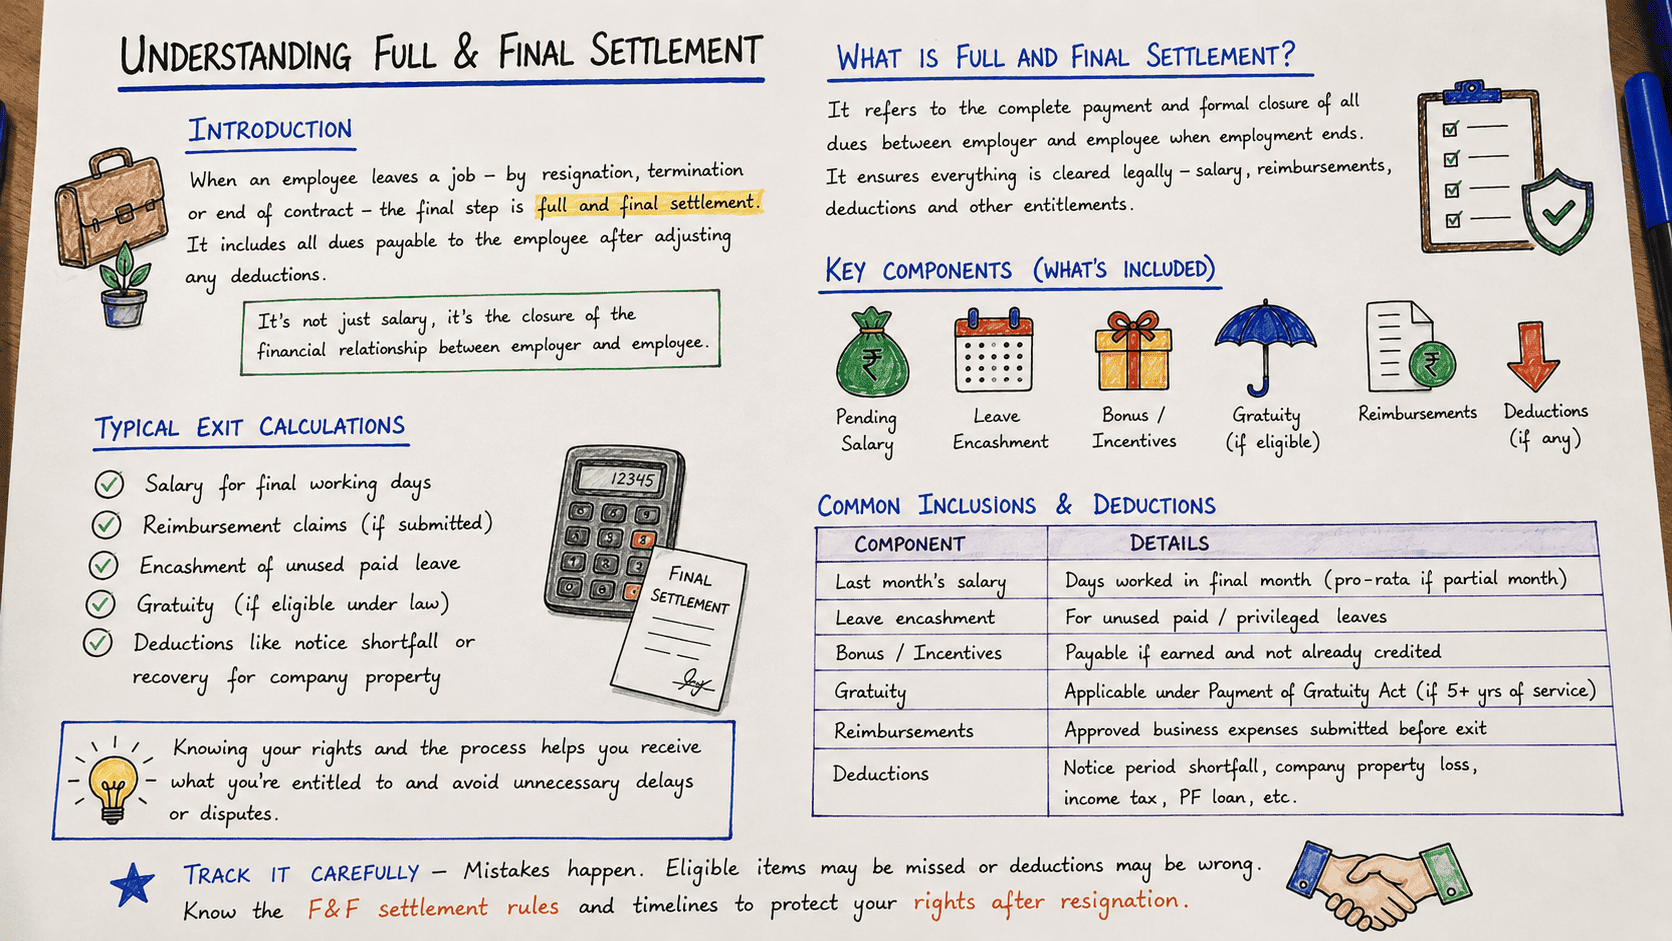 UNDERSTANDING FULL & FINAL SETTLEMENT
INTRODUCTION
When an employee leaves a job – by resignation, termination
or end of contract – the final step is full and final settlement.
It includes all dues payable to the employee after adjusting
any deductions.
It's not just salary, it's the closure of the
financial relationship between employer and employee.
TYPICAL EXIT CALCULATIONS
Salary for final working days
Reimbursement claims (if submitted)
Encashment of unused paid leave
Gratuity (if eligible under law)
Deductions like notice shortfall or
recovery for company property
12345
FINAL
SETTLEMENT
Knowing your rights and the process helps you receive
what you're entitled to and avoid unnecessary delays
or disputes.
WHAT IS FULL AND FINAL SETTLEMENT?
It refers to the complete payment and formal closure of all
dues between employer and employee when employment ends.
It ensures everything is cleared legally – salary, reimbursements,
deductions and other entitlements.
KEY COMPONENTS (WHAT'S INCLUDED)
₹
₹
Pending
Salary
Leave
Encashment
Bonus /
Incentives
Gratuity
(if eligible)
Reimbursements
Deductions
(if any)
COMMON INCLUSIONS & DEDUCTIONS
COMPONENT DETAILS
Last month's salary Days worked in final month (pro-rata if partial month)
Leave encashment For unused paid / privileged leaves
Bonus / Incentives Payable if earned and not already credited
Gratuity Applicable under Payment of Gratuity Act (if 5+ yrs of service)
Reimbursements Approved business expenses submitted before exit
Deductions Notice period shortfall, company property loss,
income tax, PF loan, etc.
TRACK IT CAREFULLY – Mistakes happen. Eligible items may be missed or deductions may be wrong.
Know the F&F settlement rules and timelines to protect your rights after resignation.